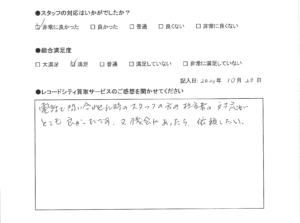 ●スタッフの対応はいかがでしたか？
☑非常に良かった □良かった □普通 □良くない □非常に良くない
●総合満足度
□大満足 ☑満足 □普通 □満足していない □非常に満足していない
記入日: 20 年 10月 20日
●レコードシティ買取サービスのご感想を聞かせてください
電話で問い合わせた時のスタッフの方の 対応が
とても良かったです。又機会があったら、依頼したい。